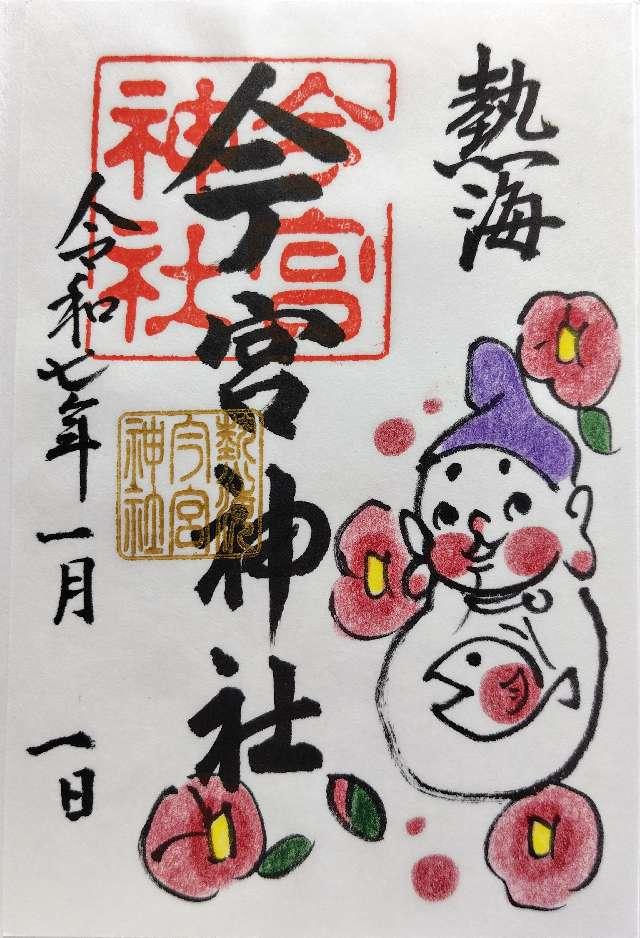 熱海
今宮神社
令和七年一月一日
今宮
神社
熱海
今宮
神社